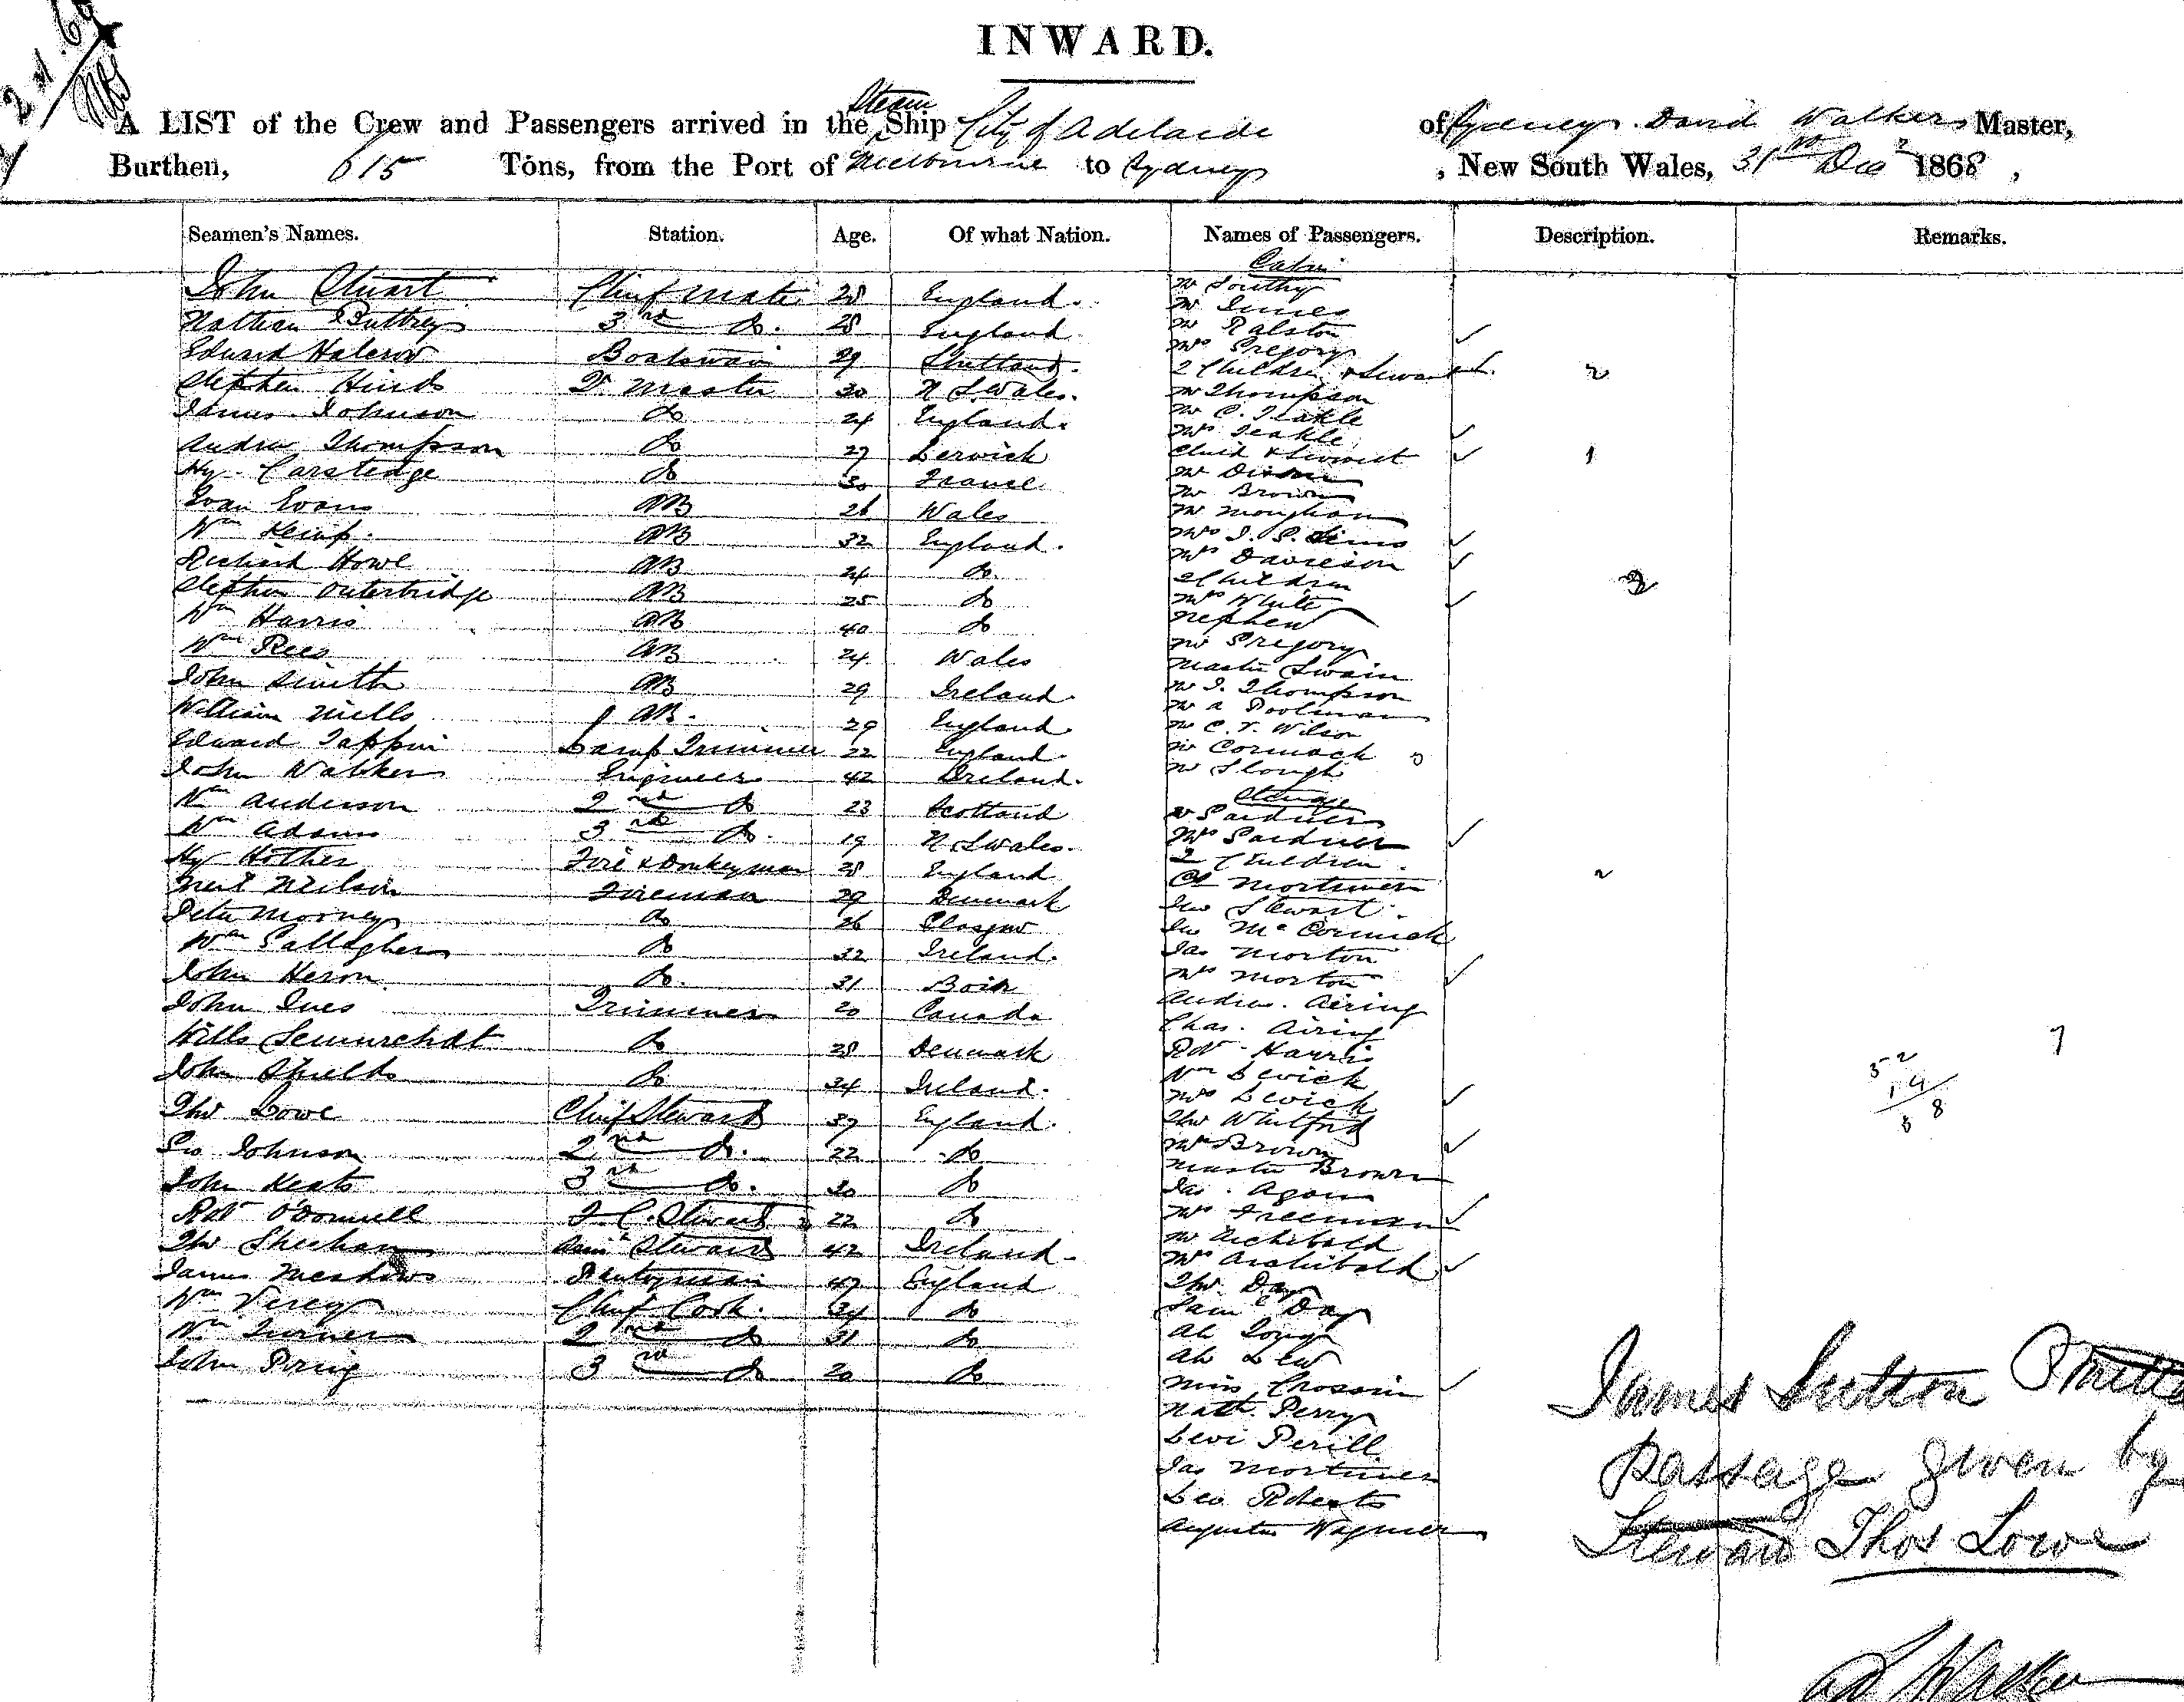 INWARD.
A LIST of the Crew and Passengers arrived in the Steam Ship City of Adelaide of Sydney David Walker Master,
Burthen, 615 Tons, from the Port of Melbourne to Sydney, New South Wales, 31st Dec 1868,
Seamen's Names. Station. Age. Of what Nation. Names of Passengers. Description. Remarks.
Cabin
John Stuart Chief Mate 28 England. Mr Southy
Mr Innes
Nathan Buttrey 3rd Do. 28 England Mr Ralston
Mrs Gregory
Edward Halcrow Boatswain 29 Shetland. 2 Children & Servant. 2
Stephen Hinds Qr Master 30 N S Wales. Mr Thompson
James Johnson Do 24 England. Mr C. Teakle
Mrs Teakle
Andrew Thompson Do 27 Lerwick Child & Servant 1
Hy Carstedge Do 30 France Mr Dixon
Mr Brown
Evan Evans AB 26 Wales Mr
Wm Kemp. AB 32 England. Mrs J. S. Sims
Mrs Davieson
Richard Howe AB 24 Do. 2 Children
Stephen Outerbridge AB 25 Do Mrs White
Wm Harris AB 40 Do Nephew
Wm Rees AB 24 Wales Mr Gregory
Master Swain
John Smith AB 29 Ireland. Mr J. Thompson
William Mills AB. 29 England Mr A Poolman
Mr C. V. Wilson
Edward Tappin Lamp Trimmer 22 England. Mr Cormack
John Walker Engineer 42 Ireland. Mr Slough
Steerage
Wm Anderson 2nd Do 23 Scotland Mr Gardner
Wm Adams 3rd Do. 19 N S Wales. Mrs Gardner
Hy Hother Fore & Donkeyman 28 England 2 Children.
Neil Neilson Fireman 29 Denmark Mortimer
Peter Mooney Do 26 Glasgow Stewart
Wm Gallagher Do 32 Ireland. McCormick
Jas Morton
John Heron Do. 31 Mrs Morton
John Ives Trimmer 20 Canada Andrew. Airing
Chas. Airing
Wills Do 28 Denmark Robt Harris
John Shields Do 34 Ireland. Wm Levick
Mrs Levick
Thos Lowe Chief Steward 37 England. Thos Whitford
Geo Johnson 2nd Do. 22 Do Mrs Brown
Master Brown
John Keats 3rd Do. 30 Do Jas.
Robt O'Donnell F. C. Steward 22 Do Mrs Freeman
Thos Sheehan Steward 42 Ireland Mr Archibald
Mrs Archibald
James Meadows Pantryman 47 England Thos. Day
Wm Verey Chief Cook. 34 Do Saml Day
Wm Turner 2nd Do 31 Do Ah
Ah Lew
John 3rd Do 20 Do Miss Crossin
Nath. Perry
Levi Perill
Jas Mortimer
Geo Roberts
Augustus Wagner
7
52
19
8
James Sutton
passage given by
Steward Thos Lowe
D Walker